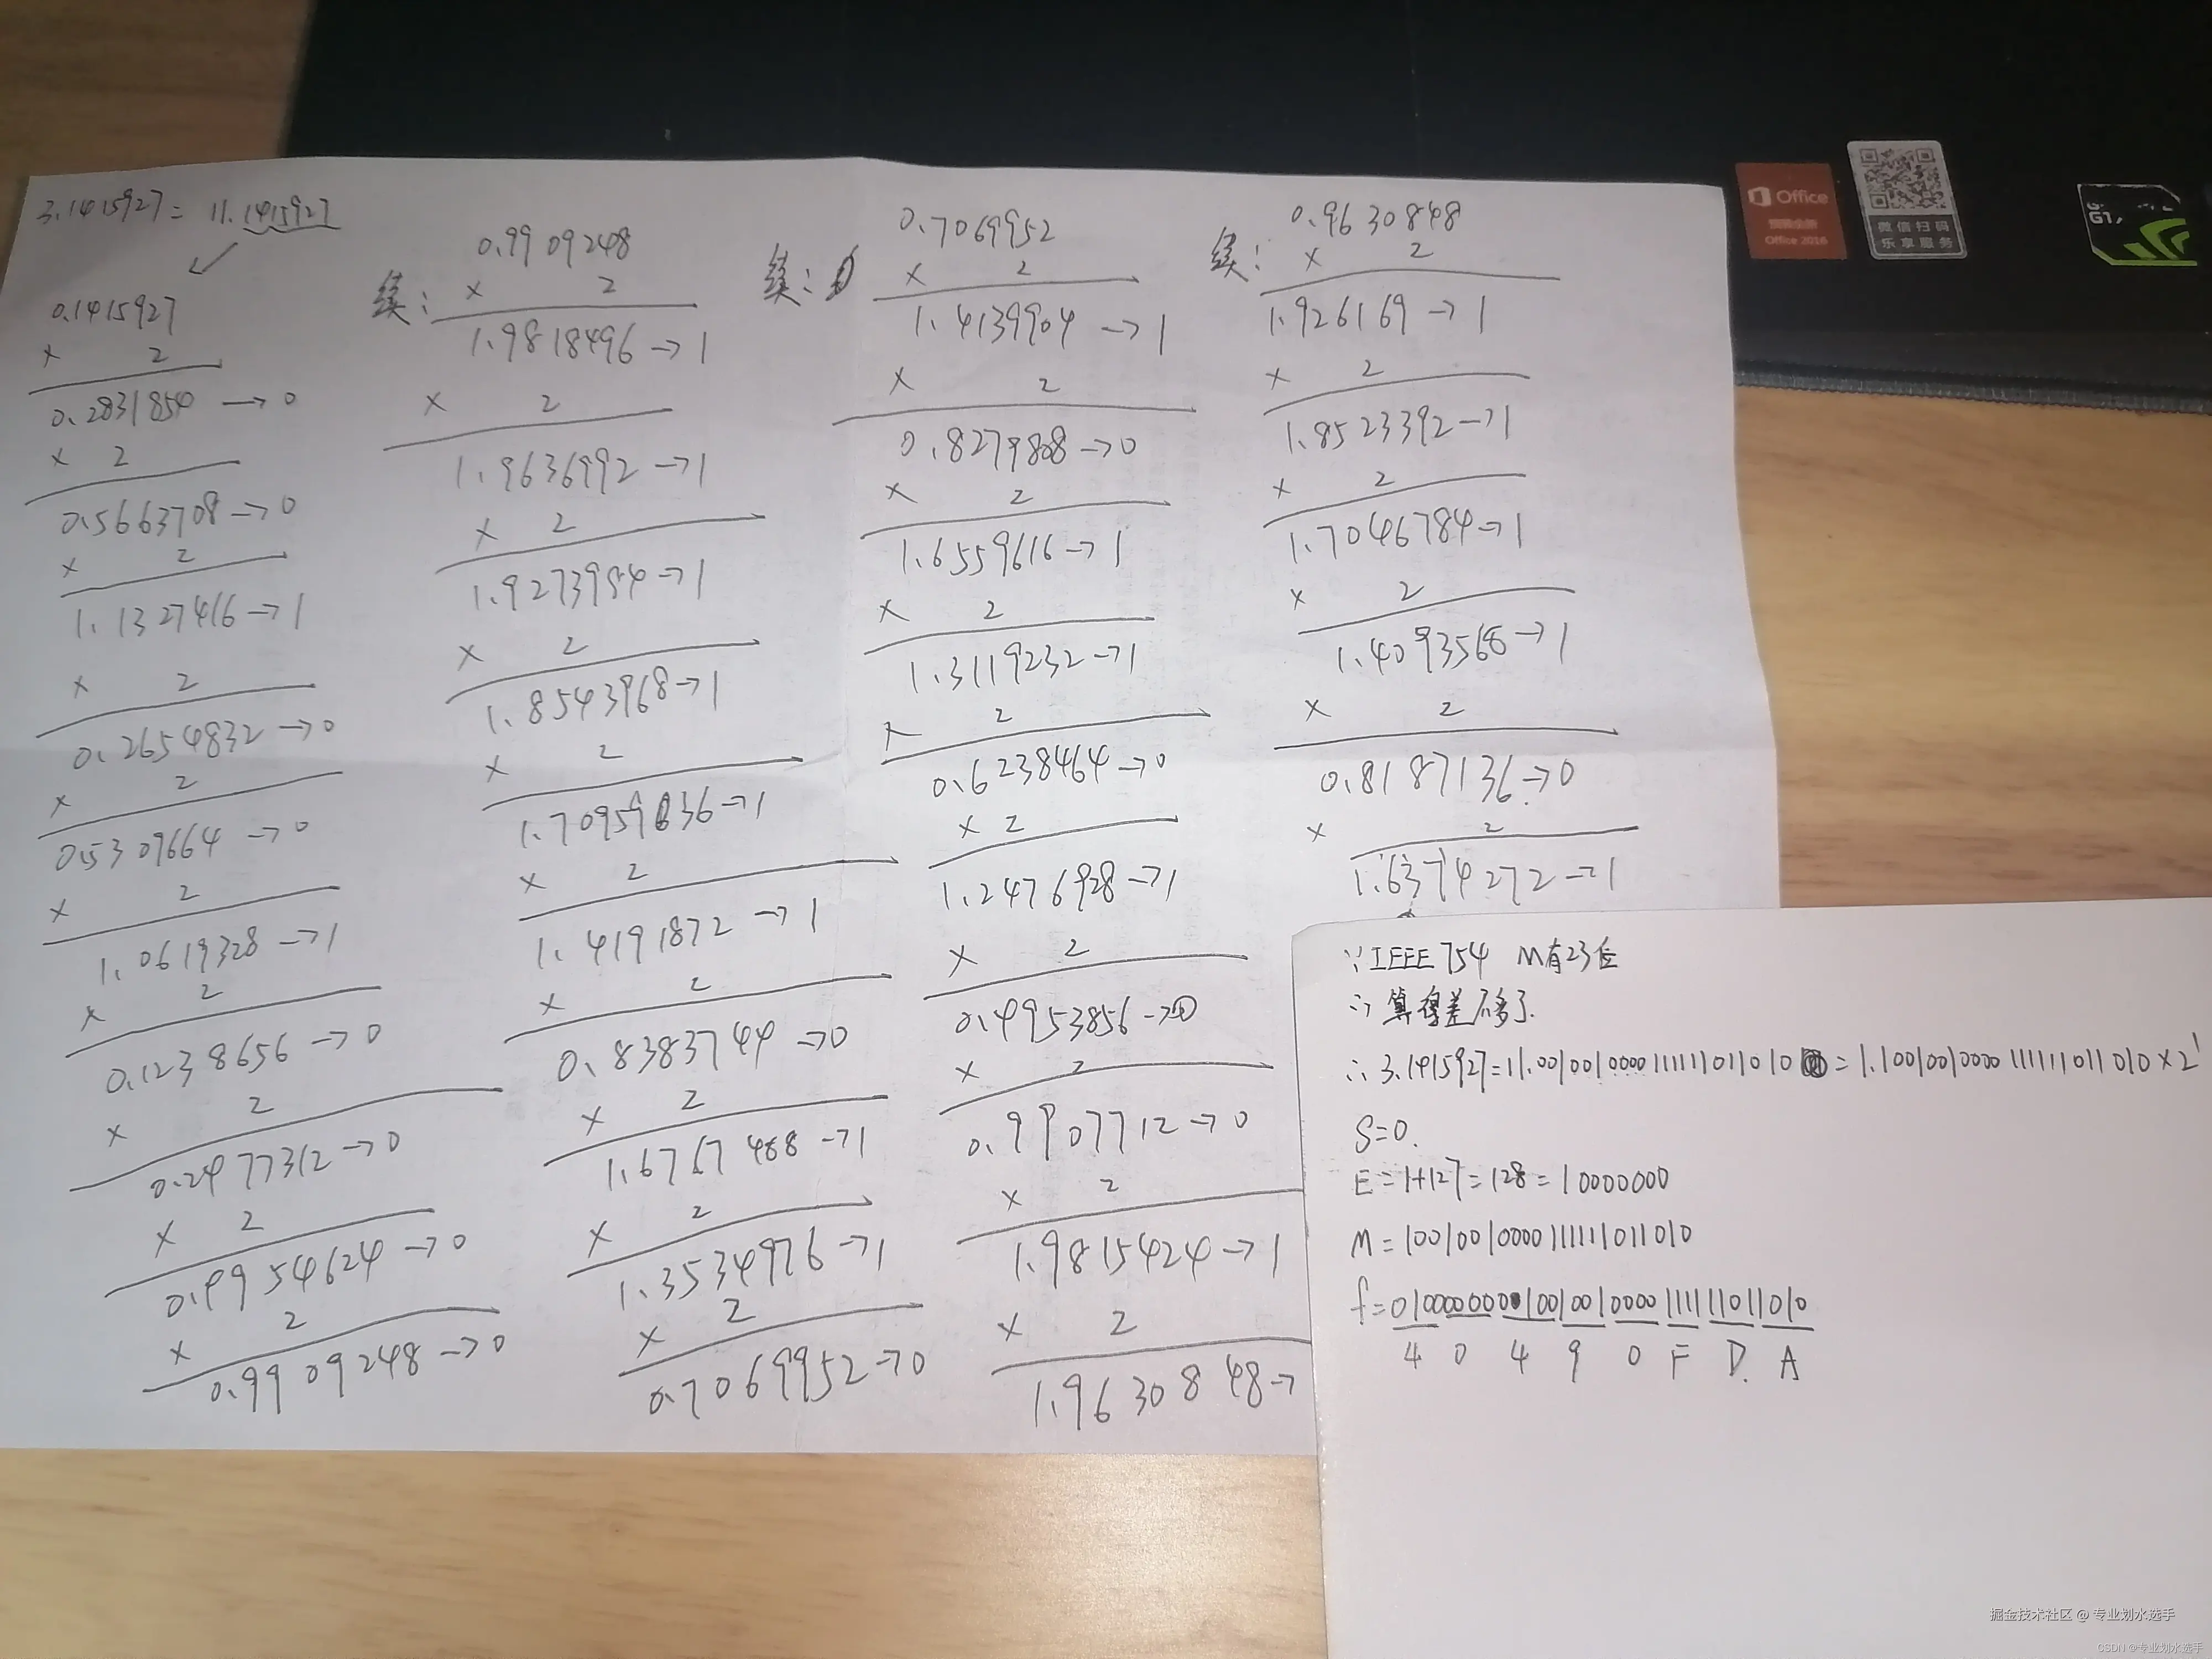 3.1415927 = 11.1415927
0.1415927
× 2
0.2831854 → 0
× 2
0.5663708 → 0
× 2
1.1327416 → 1
× 2
0.2654832 → 0
× 2
0.5309664 → 0
× 2
1.0619328 → 1
× 2
0.1238656 → 0
× 2
0.2477312 → 0
× 2
0.4954624 → 0
× 2
0.9909248 → 0
续:
0.9909248
× 2
1.9818496 → 1
× 2
1.9636992 → 1
× 2
1.9273984 → 1
× 2
1.8543968 → 1
× 2
1.7095936 → 1
× 2
1.4191872 → 1
× 2
0.8383744 → 0
× 2
1.6767488 → 1
× 2
1.3534976 → 1
× 2
0.7069952 → 0
续:
0.7069952
× 2
1.4139904 → 1
× 2
0.8279808 → 0
× 2
1.6559616 → 1
× 2
1.3119232 → 1
× 2
0.6238464 → 0
× 2
1.2476928 → 1
× 2
0.4953856 → 0
× 2
0.9907712 → 0
× 2
1.9815424 → 1
× 2
1.9630848 →
续:
0.9630848
× 2
1.926169 → 1
× 2
1.8523392 → 1
× 2
1.7046784 → 1
× 2
1.4093568 → 1
× 2
0.8187136 → 0
× 2
1.6374272 → 1
∵ IEEE 754 M有23位
∴ 算得差不多了.
∴ 3.1415927 = 11.0010010000111111011010 = 1.10010010000111111011010 × 2¹
S = 0.
E = 1+127 = 128 = 10000000
M = 10010010000111111011010
f = 01000000010010010000111111011010
4 0 4 9 0 F D A
Office
Office 2016
微信扫码
乐享服务
掘金技术社区 @ 专业划水选手
CSDN @专业划水选手